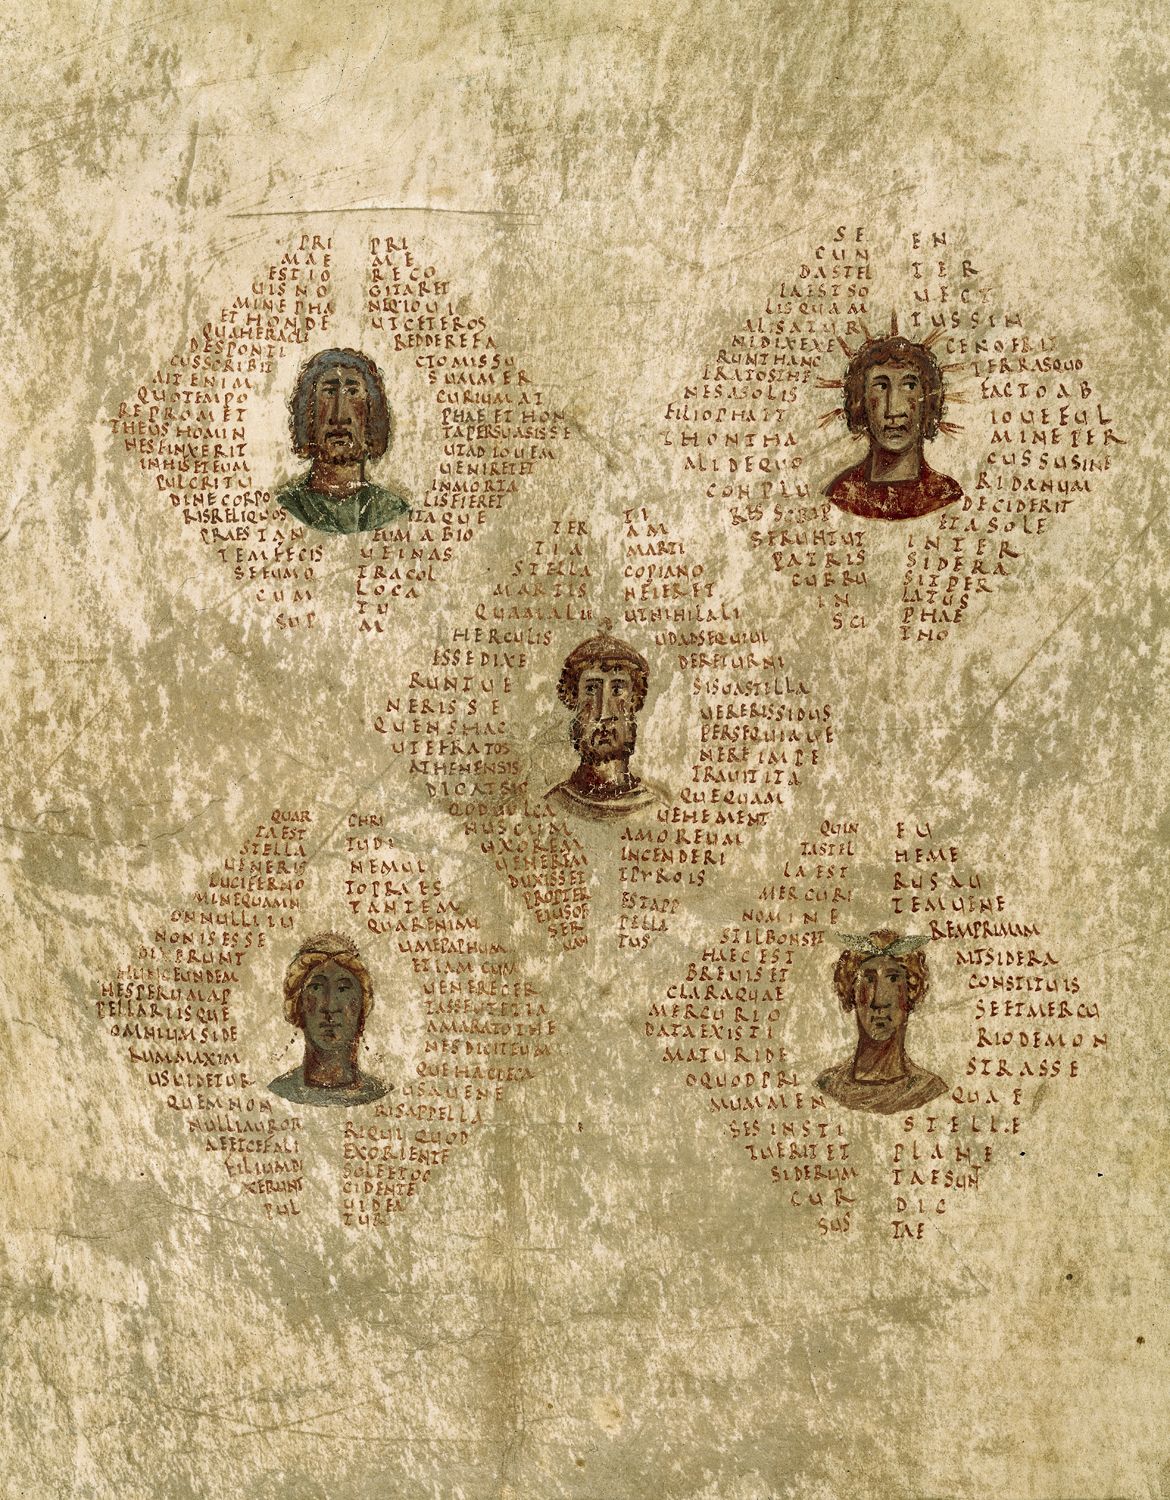 PRI
MAE
ESTIO
UISNO
MINEPHA
ETHONDE
QUAHERACLI
DESPONTI
CUSSCRIBIT
AITENIM
QUOTEMPO
REPROMET
THEUSHOMIN
NESFINXERIT
INHISETEUM
PULCRITU
DINECORPO
RISRELIQUOS
PRAESTAN
TEMFECIS
SEEUMQ
CUM
SUP
PRI
ME
RECO
GITARET
NEQIOUI
UTCETEROS
REDDEREFA
CTOMISSU
SUMMER
CURIUMAT
PHAETHON
TAPERSUASISSE
UTADIOUEM
UENIRETET
INMORTA
LISFIERET
ITAQUE
EUMABIO
UEINAS
TRACOL
LOCA
TU
M
SE
CUN
DASTEL
LAESTSO
LISQUAM
ALISATUR
NIDIXERE
RUNTHANC
ERATOSTHE
NESASOLIS
FILIOPHAET
THONTHA
ALIDEQUO
CONPLU
RESSCRIP
SERUNTUT
PATRIS
CURRU
IN
SCI
EN
TER
UECT
TUSSIN
CENDERIT
TERRASQUO
FACTOAB
IOUEFUL
MINEPER
CUSSUSINE
RIDANUM
DECIDERIT
ETASOLE
INTER
SIDERA
SITPER
LATUS
PHAE
THO
TER
TIA
STELLA
MARTIS
QUAMALII
HERCULIS
ESSEDIXE
RUNTUE
NERISSE
QUENSHAC
UTERATOS
ATHENENSIS
DICATSIC
QODUULCA
NUSCUM
UXOREM
UENEREM
DUXISSET
PROPTER
EIUSOB
SER
UAN
TI
AM
MARTI
COPIANO
NEIERET
UTNIHILALI
UDADSEQUIUI
DERETURNI
SISUASTELLA
UERERISSIDUS
PERSEQUIAUE
NEREIMPE
TRAUITITA
QUEQUAM
UEHEMENT
AMOREUM
INCENDERI
TPYROIS
ESTAPP
PELLA
TUS
QUAR
TAEST
STELLA
UENERIS
LUCIFERNO
MINEQUAMN
ONNULLIIU
NONISESSE
DIXERUNT
HUNCEUNDEM
HESPERUMAP
PELLARIISQUE
OMNIUMSIDE
RUMMAXIM
USUIDETUR
QUEMNON
NULLIAUROR
AEETCEFALI
FILIUMDI
XERUNT
PUL
CHRI
TUDI
NEMUL
TOPRAES
TANTEM
QUARENIM
UMEPAPHUM
ETIAMCUM
UENERECER
TASSEUTETIA
AMARATOTHE
NESDICITEUM
QUEHACDECA
USAUENE
RISAPPELLA
RIQUIQUOD
EXORIENTE
SOLEETOC
CIDENTE
UIDEA
TUR
QUIN
TASTEL
LAEST
MERCURI
NOMINE
STILLBONSET
HAECEST
BREUISET
CLARAQUAE
MERCURIO
DATAEXISTI
MATURIDE
OQUODPRI
MUMMEN
SESINSTI
TUERITET
SIDERUM
CUR
SUS
EU
HEME
RUSAU
TEMUENE
REMPRIMAM
AITSIDERA
CONSTITUIS
SEETMERCU
RIODEMON
STRASSE
QUAE
STELLE
PLANE
TAESUNT
DIC
TAE